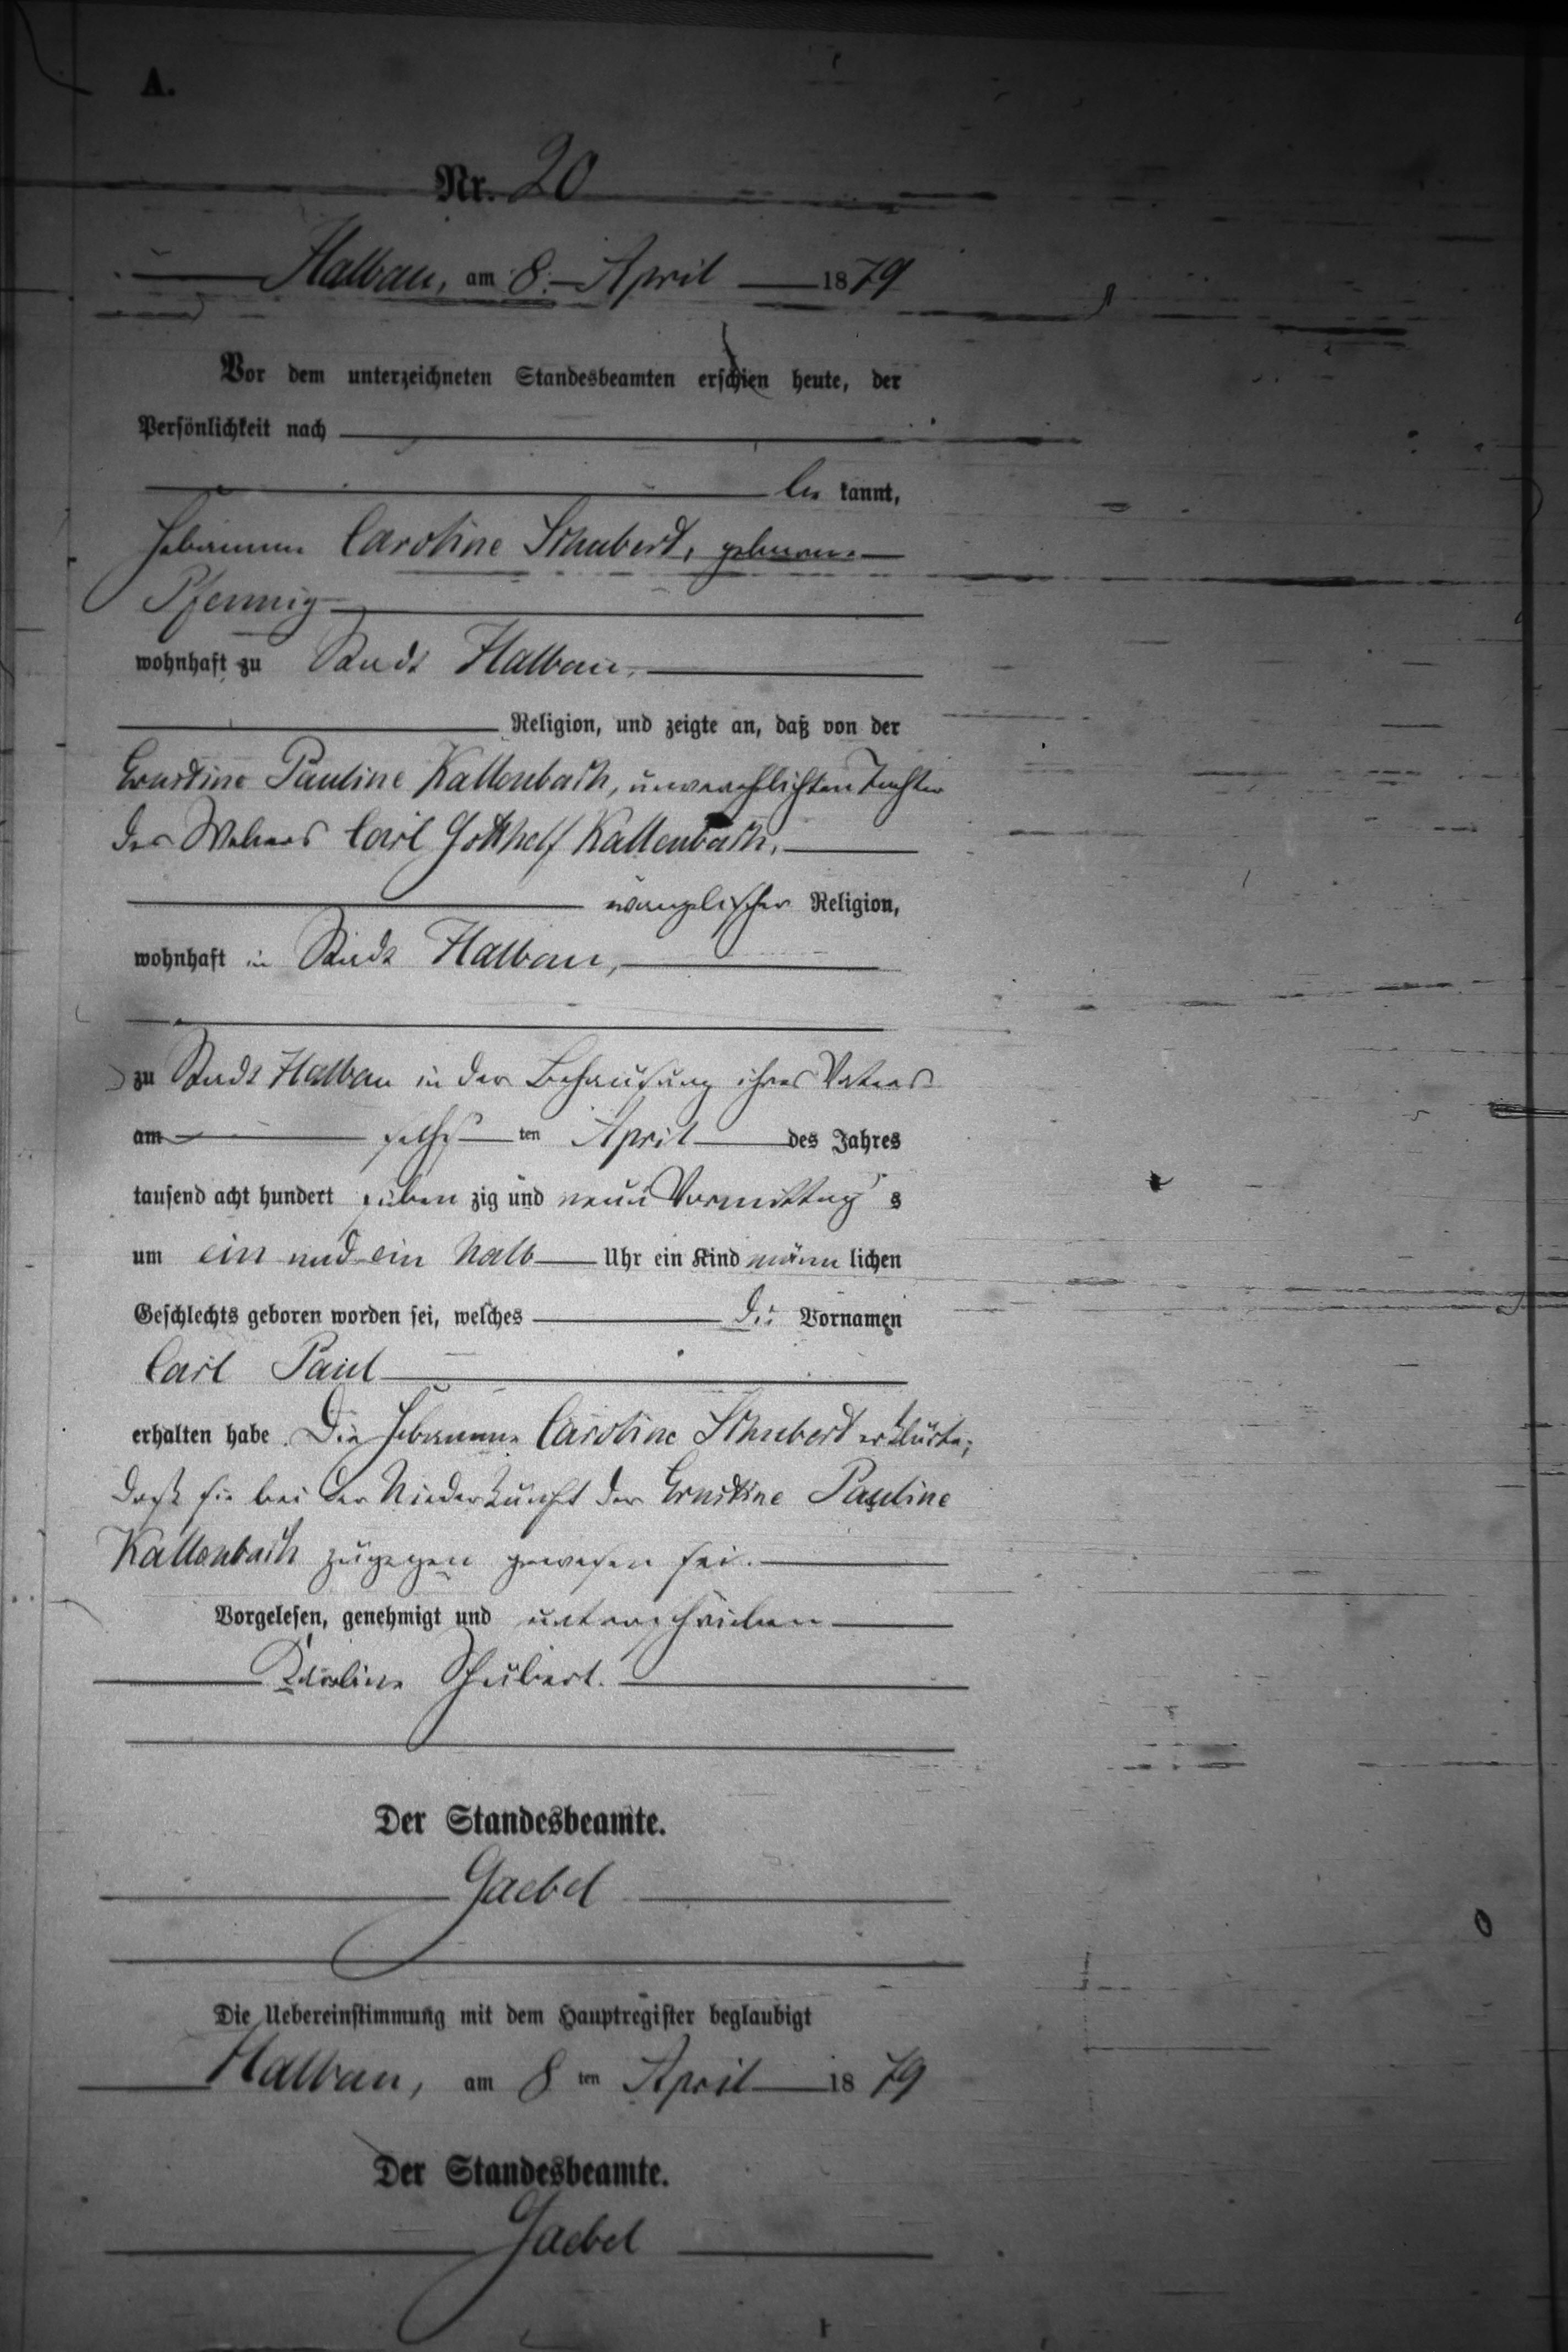 A.
Nr. 20
Halbau, am 8. April 1879
Vor dem unterzeichneten Standesbeamten erschien heute, der
Persönlichkeit nach
be kannt,
Hebamme Caroline Schubert, geborene
Pfennig
wohnhaft zu Stadt Halbau,
Religion, und zeigte an, daß von der
Ernstine Pauline Kaltenbach, unverehelichten Tochter
des Webers Carl Gotthelf Kaltenbach,
evangelischer Religion,
wohnhaft in Stadt Halbau,
zu Stadt Halbau in der Behausung ihres Vaters
am sechs ten April des Jahres
tausend acht hundert sieben zig und neun Vormittag s
um ein und ein halb Uhr ein Kind männ lichen
Geschlechts geboren worden sei, welches die Vornamen
Carl Paul
erhalten habe. Die Hebamme Caroline Schubert erklärte,
daß sie bei der Niederkunft der Ernstine Pauline
Kaltenbach zugegen gewesen sei.
Vorgelesen, genehmigt und unterschrieben
Karoline Schubert.
Der Standesbeamte.
Gaebel
Die Uebereinstimmung mit dem Hauptregister beglaubigt
Halbau, am 8 ten April 18 79
Der Standesbeamte.
Gaebel